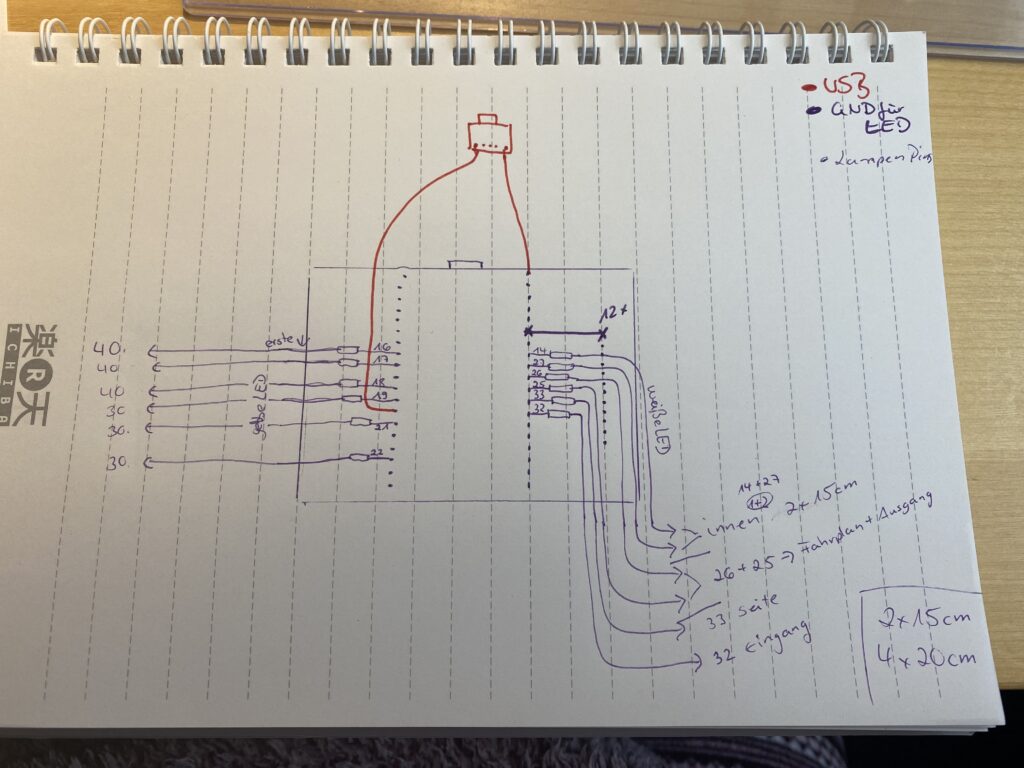 USB
GND für
LED
Lampen Pins
12x
erste
40.
40.
40
30
30.
30.
16
17
18
19
21
22
gelbe LED
14
27
26
25
33
32
weiße LED
14+27
1+2
innen 2x15cm
26+25 => Fahrplan+Ausgang
33 Seite
32 Eingang
2x15cm
4x20cm
楽R天
ICHIBA